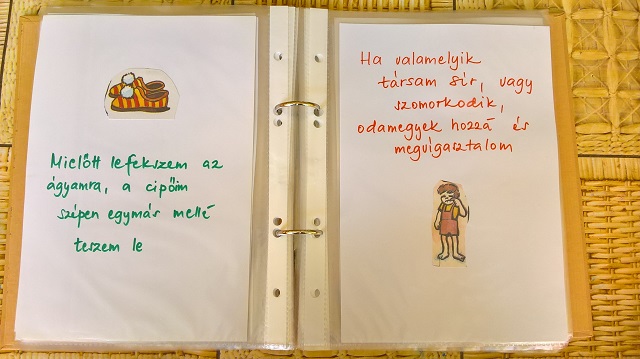 Mielőtt lefekszem az
ágyamra, a cipőim
szépen egymás mellé
teszem le
Ha valamelyik
társam sír, vagy
szomorkodik,
odamegyek hozzá és
megvigasztalom